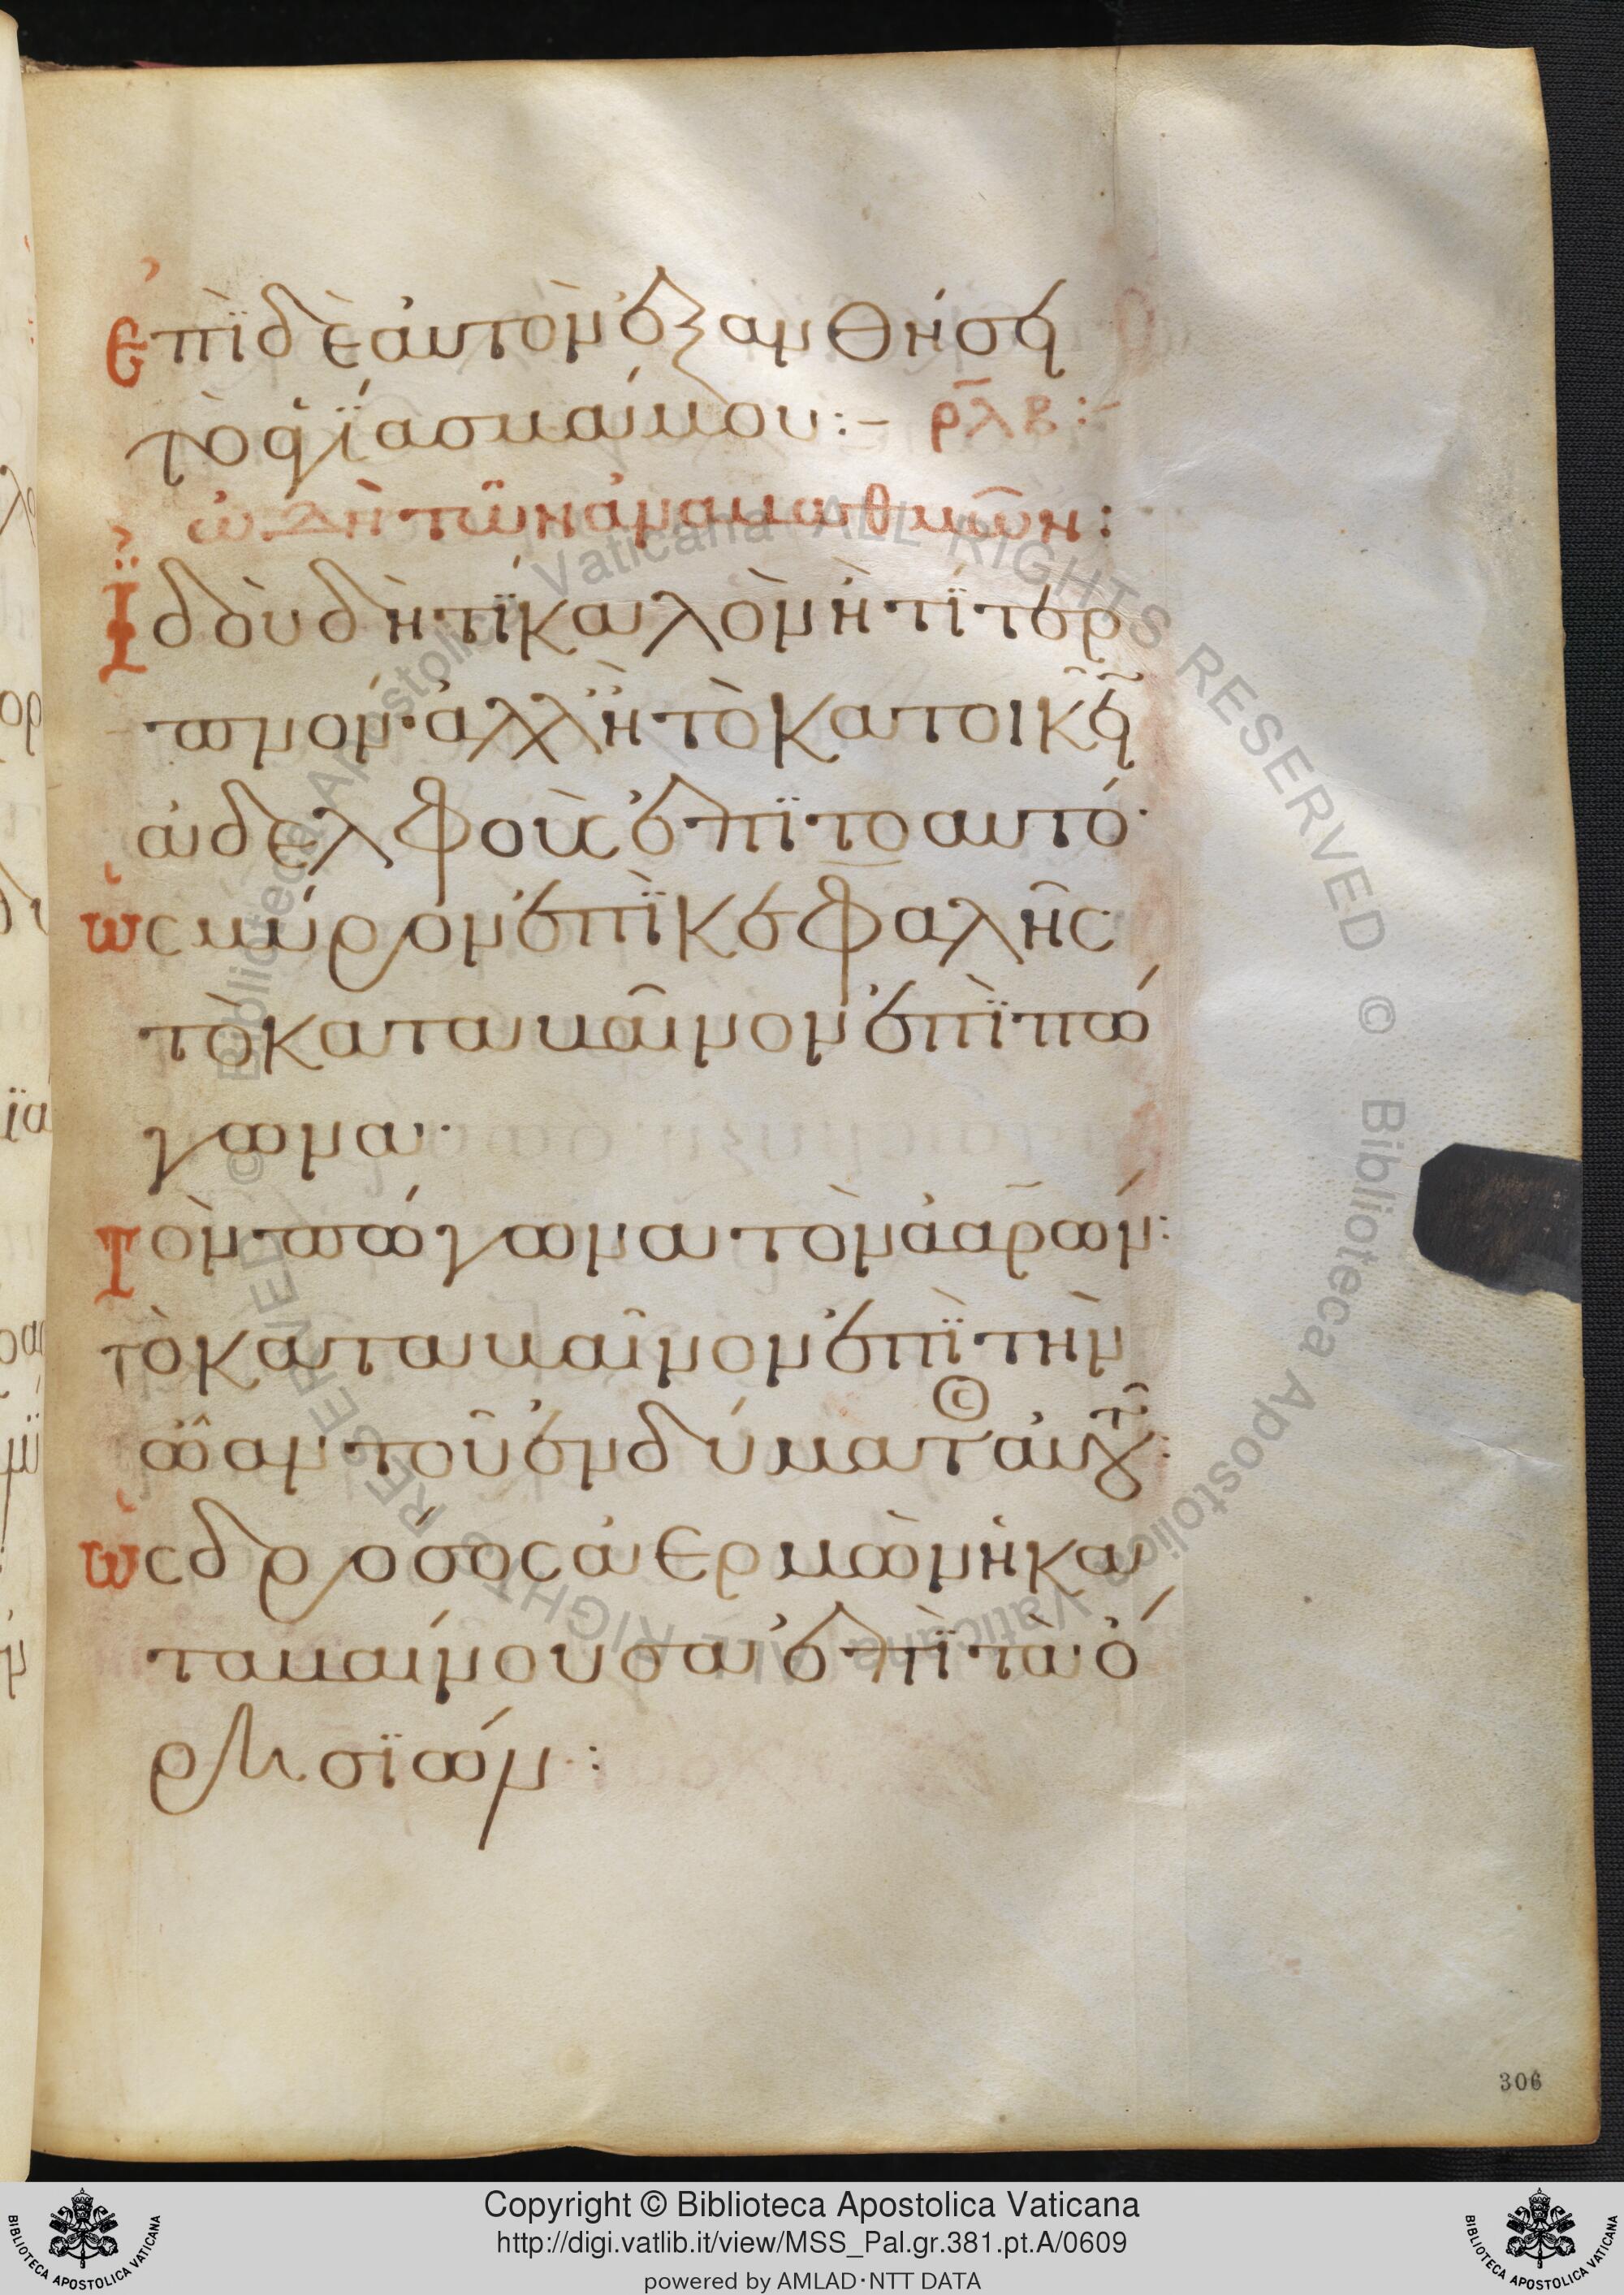 Ἐπϊ δὲ ἀυτὸν ἐξανθήσει
τὸ ἁγϊασμά μου:– ρλβ:–
ὠδὴ τῶν ἀναβαθμῶν:
Ϊδοὺ δὴ τί καλὸν ἢ τί τερ
πνόν· ἀλλ' ἢ τὸ κατοικεῖν
ἀδελφοὺς ἐπϊτοαυτό·
ὡς μύρον ἐπϊ κεφαλῆς
τὸ καταβαῖνον ἐπϊ πώ
γωνα·
Τὸν πώγωνα τὸν ἀαρών:
τὸ καταβαῖνον ἐπϊ τὴν
ὤαν τοῦ ἐνδύματος ἀυτοῦ:
ὡς δρόσος ἀερμὼν ἡ κα
ταβαίνουσα ἐπϊ τὰ ὄ
ρη σϊών:
306
Copyright © Biblioteca Apostolica Vaticana
http://digi.vatlib.it/view/MSS_Pal.gr.381.pt.A/0609
powered by AMLAD·NTT DATA
BIBLIOTECA APOSTOLICA VATICANA
BIBLIOTECA APOSTOLICA VATICANA
© Biblioteca Apostolica Vaticana ALL RIGHTS RESERVED
© Biblioteca Apostolica Vaticana ALL RIGHTS RESERVED